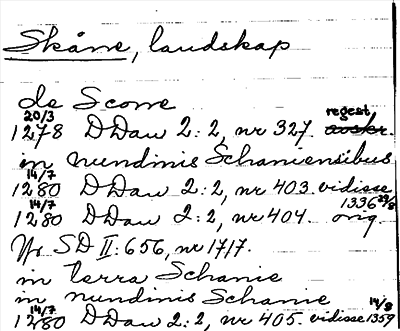 Skåne, landskap
de Scone
20/3 regest
1278 DDan 2:2, nr 327. avskr.
in nundinis Schaniensibus
14/7
1280 DDan 2:2, nr 403. vidisse
14/7 1336 29/8
1280 DDan 2:2, nr 404. orig.
Yr SD II:656, nr 1717.
in terra Schanie
in nundinis Schanie
14/7 14/9
1280 DDan 2:2, nr 405. vidisse 1359